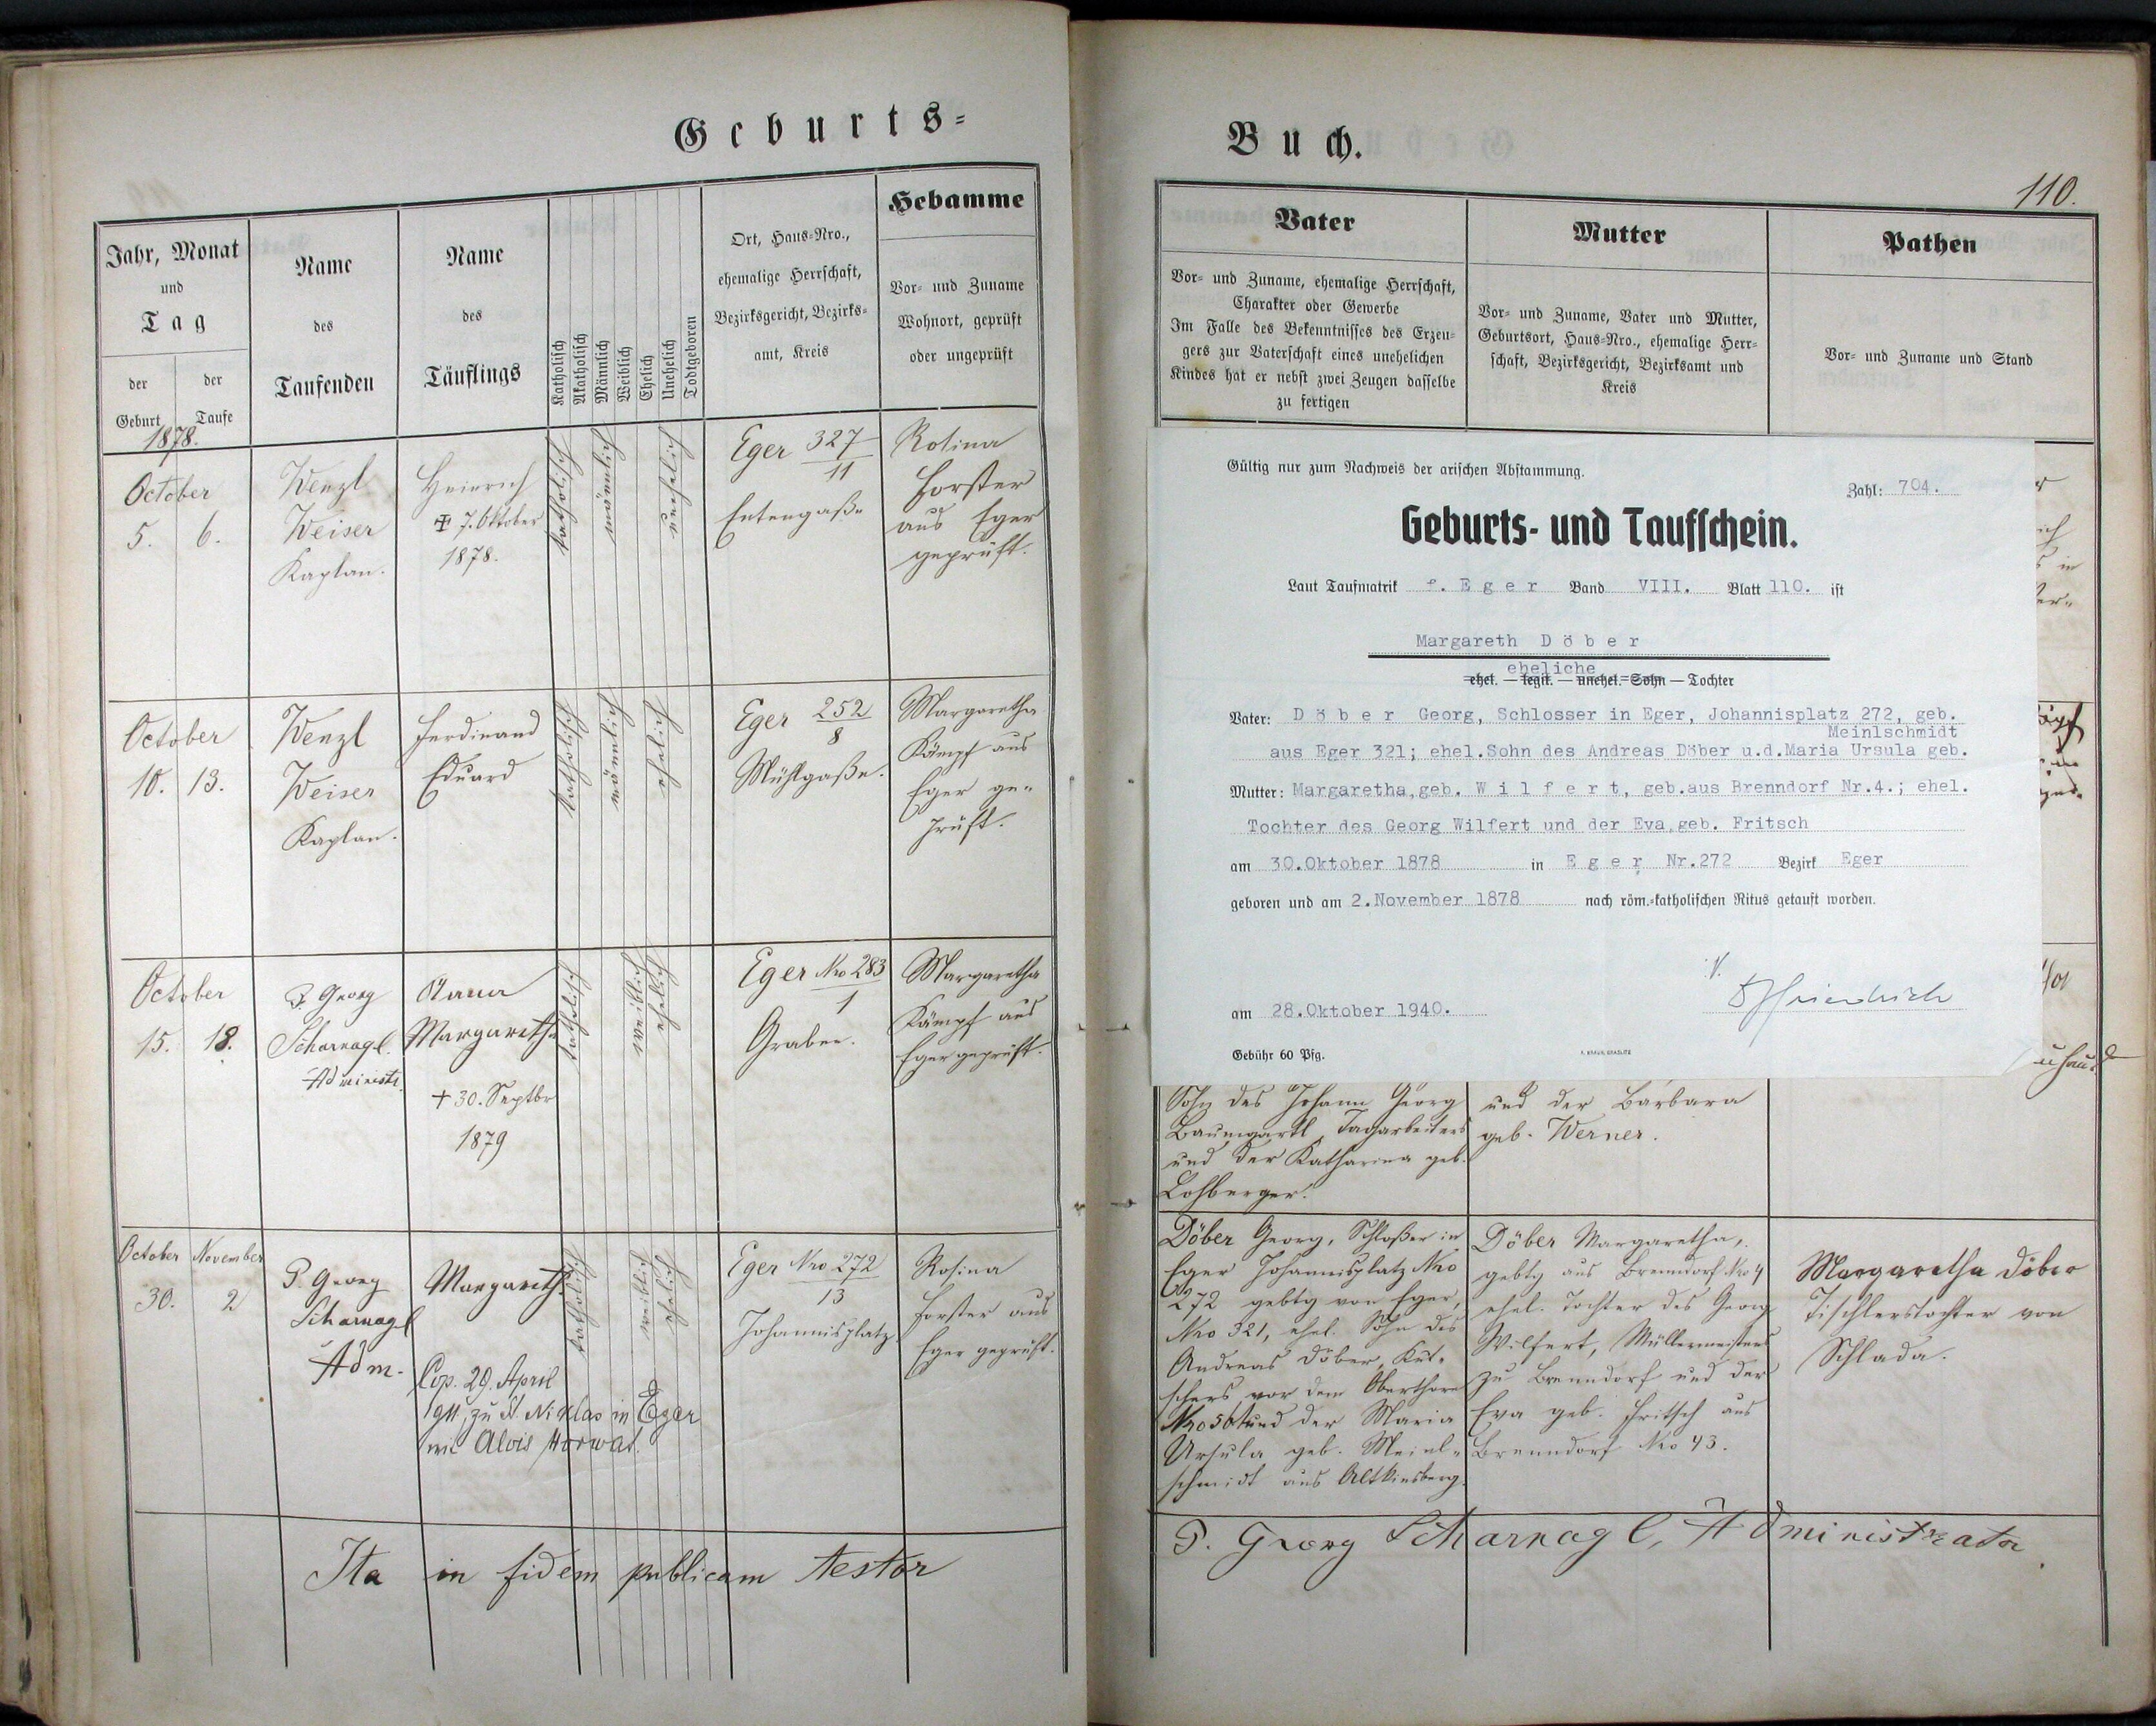 Geburts-
Jahr, Monat
und
Tag
der
Geburt
der
Taufe
Name
des
Taufenden
Name
des
Täuflings
Katholisch
Akatholisch
Männlich
Weiblich
Ehelich
Unehelich
Todtgeboren
Ort, Haus-Nro.,
ehemalige Herrschaft,
Bezirksgericht, Bezirks-
amt, Kreis
Hebamme
Vor- und Zuname
Wohnort, geprüft
oder ungeprüft
1878.
October
5. 6.
Wenzl
Weiser
Kaplan.
Heinrich
7. Oktober
1878.
katholisch
männlich
unehelich
Eger 327
11
Entengaße
Rosina
Forster
aus Eger
geprüft.
October
10. 13.
Wenzl
Weiser
Kaplan.
Ferdinand
Eduard
katholisch
männlich
ehelich
Eger 252
8
Mühlgaße.
Margaretha
Kämpf aus
Eger ge-
prüft.
October
15. 18.
P. Georg
Scharnagl.
Administr.
Anna
Margareth
+ 30. Septbr
1879
katholisch
weiblich
ehelich
Eger Nro 283
1
Graben.
Margaretha
Kämpf aus
Eger geprüft.
October November
30. 2
P. Georg
Scharnagl
Adm.
Margareth
Cop. 29. April
1911, zu St. Niklas in Eger
mit Alois Horwat.
katholisch
weiblich
ehelich
Eger Nro 272
13
Johannisplatz
Rosina
Forster aus
Eger geprüft.
Ita in fidem publicam testor
Buch.
110.
Vater
Vor- und Zuname, ehemalige Herrschaft,
Charakter oder Gewerbe
Im Falle des Bekenntnisses des Erzeu-
gers zur Vaterschaft eines unehelichen
Kindes hat er nebst zwei Zeugen dasselbe
zu fertigen
Mutter
Vor- und Zuname, Vater und Mutter,
Geburtsort, Haus-Nro., ehemalige Herr-
schaft, Bezirksgericht, Bezirksamt und
Kreis
Pathen
Vor- und Zuname und Stand
Gültig nur zum Nachweis der arischen Abstammung.
Zahl: 704.
Geburts- und Taufschein.
Laut Taufmatrik f. Eger Band VIII. Blatt 110. ist
Margareth Döber
eheliche
ehel. — legit. — unehel. Sohn — Tochter
Vater: Döber Georg, Schlosser in Eger, Johannisplatz 272, geb.
Meinlschmidt
aus Eger 321; ehel.Sohn des Andreas Döber u.d.Maria Ursula geb.
Mutter: Margaretha,geb. Wilfert, geb.aus Brenndorf Nr.4.; ehel.
Tochter des Georg Wilfert und der Eva,geb. Fritsch
am 30.Oktober 1878 in Eger Nr.272 Bezirk Eger
geboren und am 2.November 1878 nach röm.-katholischen Ritus getauft worden.
am 28.Oktober 1940.
Gebühr 60 Pfg.
Sohn des Johann Georg
Baumgartl, Tagarbeiters
und der Katharina geb.
Lohberger.
und der Barbara
geb. Werner.
Döber Georg, Schloßer in
Eger Johannisplatz Nro
272 gebtg von Eger,
Nro 321, ehel. Sohn des
Andreas Döber, Kut-
schers vor dem Oberthore
und der Maria
Ursula geb. Meinl-
schmidt aus Altkinsberg.
Döber Margaretha,
gebtg aus Brenndorf Nro 4
ehel. Tochter des Georg
Wilfert, Müllermeisters
zu Brenndorf und der
Eva geb. Fritsch aus
Brenndorf Nro 43.
Margaretha Döber
Tischlerstochter von
Schlada.
P. Georg Scharnagl, Administrator